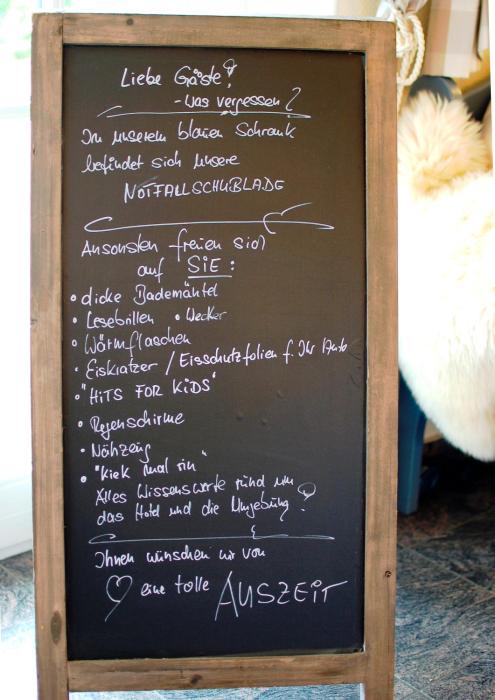 Liebe Gäste!
- Was vergessen?
In unserem blauen Schrank
befindet sich unsere
NOTFALLSCHUBLADE
Ansonsten freuen sich
auf SIE:
• dicke Bademäntel
• Lesebrillen • Wecker
• Wärmflaschen
• Eiskratzer / Eisschutzfolien f. Ihr Auto
• "HITS FOR KIDS"
• Regenschirme
• Nähzeug
• "Kiek mal rin"
Alles Wissenswerte rund um
das Hotel und die Umgebung!
Ihnen wünschen wir von
♡ eine tolle AUSZEIT